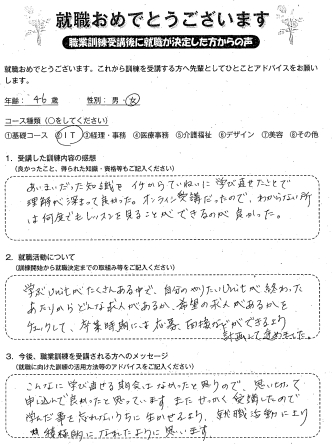 就職おめでとうございます
職業訓練受講後に就職が決定した方からの声
就職おめでとうございます。これから訓練を受講する方へ先輩としてひとことアドバイスをお願い
します。
年齢： 46 歳　性別： 男 ・ 女
コース種類（○をしてください）
①基礎コース ②IT ③経理・事務 ④医療事務 ⑤介護福祉 ⑥デザイン ⑦美容 ⑧その他
1．受講した訓練内容の感想
（良かったこと、得られた知識・資格等もご記入ください）
あいまいだった知識を イチからていねいに学び直せたことで
理解が深まって良かった。オンライン受講だったので、わからない所
は何度でもレッスンを見ることができるのが良かった。
2．就職活動について
（訓練開始から就職決定までの取組み等をご記入ください）
学ぶUnitがたくさんある中で、自分のやりたいUnitが終わった
あたりからどんな求人があるか、希望の求人があるかを
チェックして、卒業時期には応募、面接などができるよう
計画して進めました。
3．今後、職業訓練を受講される方へのメッセージ
（就職に向けた訓練の活用方法等のアドバイスをご記入ください）
こんなに学び直せる機会はなかったと思うので、思い切って
申し込んで良かったと思っています。またせっかく受講したので
学んだ事を忘れないうちに生かせるよう、就職活動により
積極的になれたように思います。